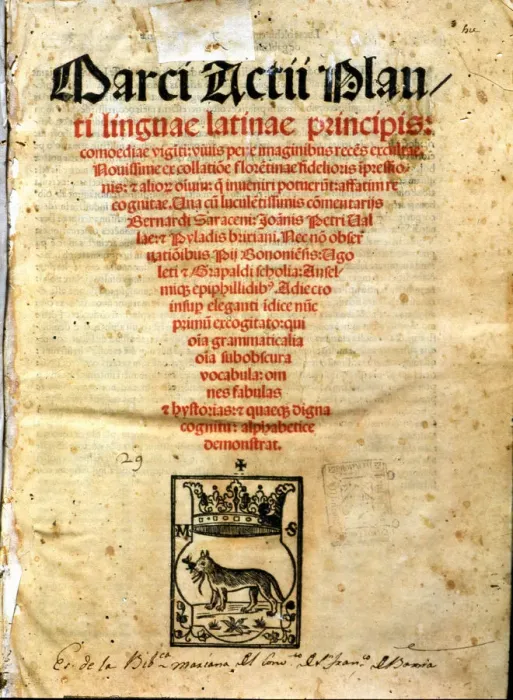 hu
Marci Actii Plau/
ti linguae latinae principis:
comoediae viginti: viuis pene imaginibus recēs excultae.
Nouissime ex collatiōe florētinae fidelioris īpressio
nis: & alior̄ oīum: q̄ inueniri potuerūt: affatim re
cognitae. Una cū luculētissimis cōmentarijs
Bernardi Saraceni: Joānis Petri Val
lae: & Pyladis brixiani. Nec nō obser
uatiōibus Pij Bononiēsis: Ugo
leti & Grapaldi scholia: Ansel
miq; epiphillidibꝰ. Adiecto
insup eleganti īdice nūc
primū excogitato: qui
oīa grammaticalia
oīa subobscura
vocabula: om
nes fabulas
& hystorias: & quaeq; digna
cognitu: alphabetice
demonstrat.
29
M S
Es de la Bib.ca mariana del Conv.to de S. Fran.co de Baena